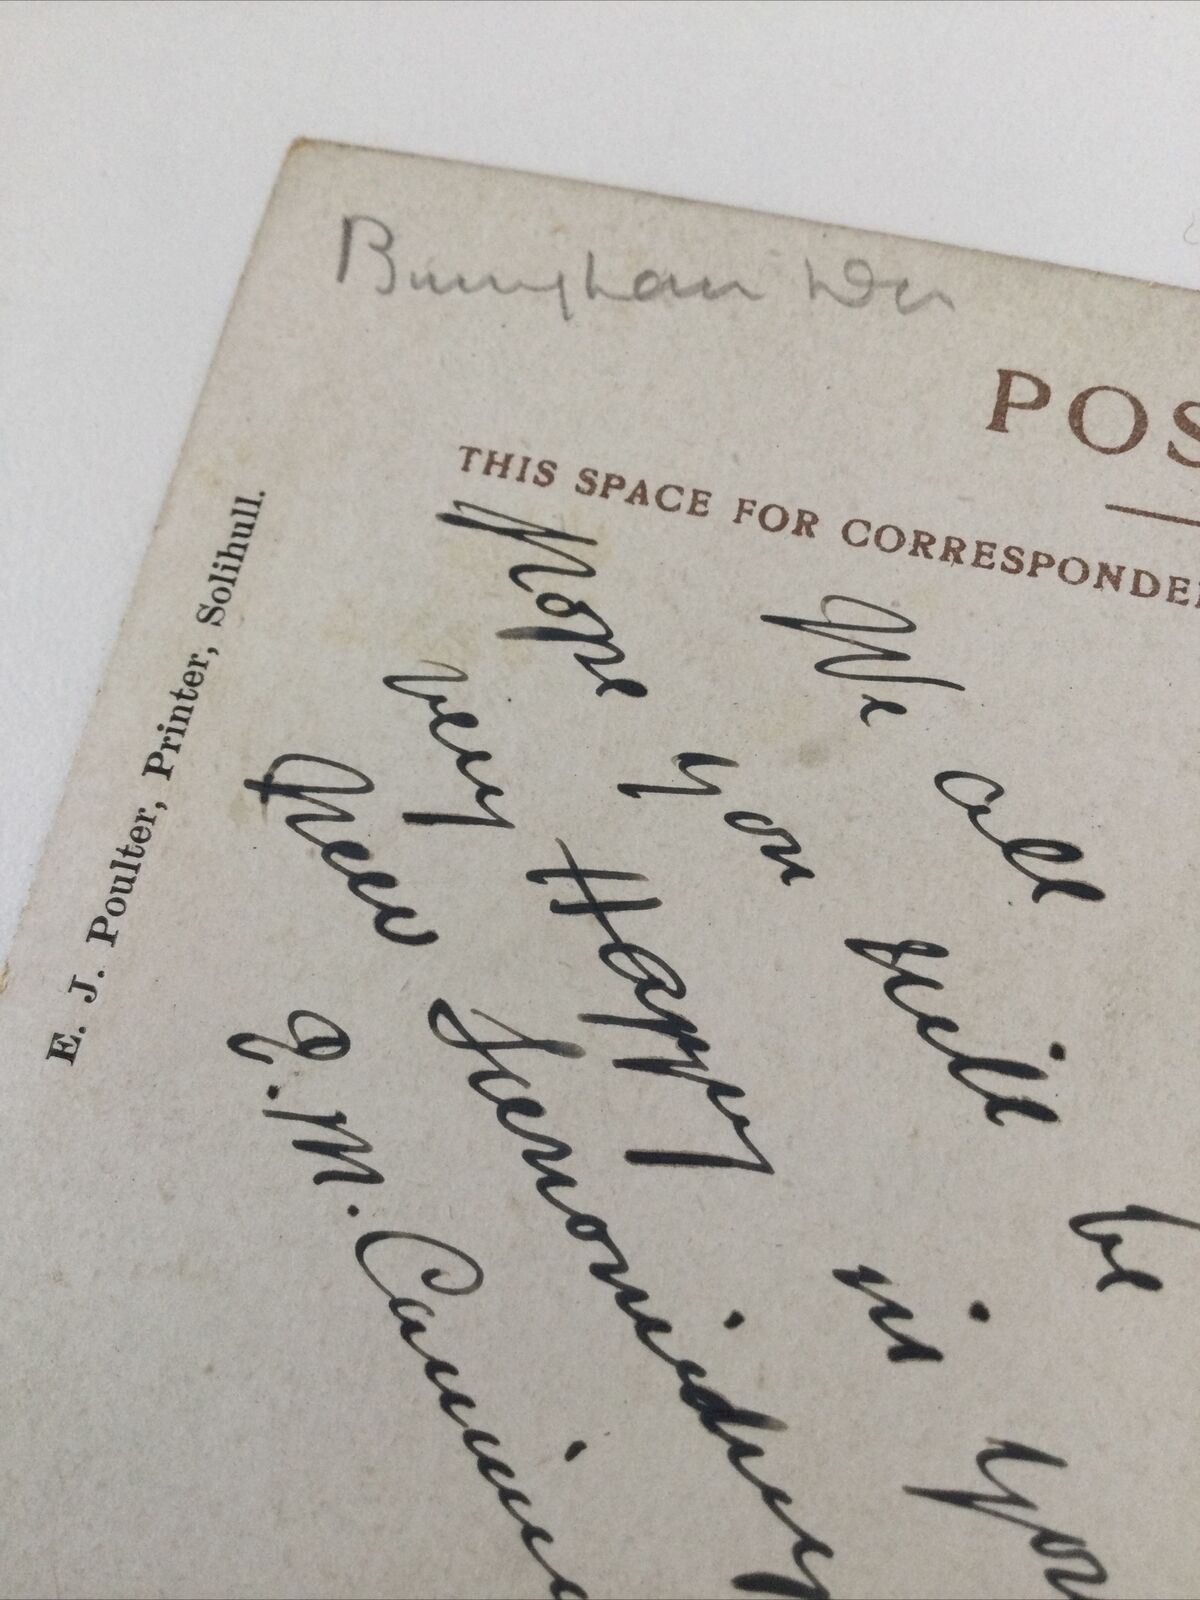 Birmingham
POS
THIS SPACE FOR CORRESPONDE
We all
Hope you will be
very Happy in you
New
E. M.
E. J. Poulter, Printer, Solihull.